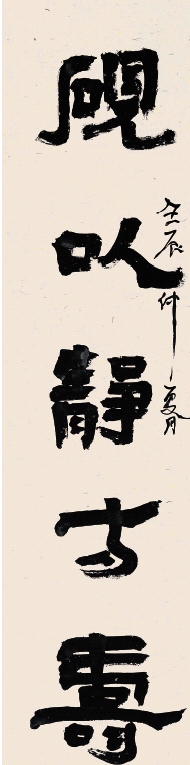 硯以靜方壽
壬辰仲夏月